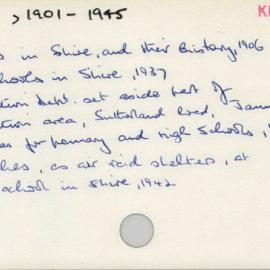 , 1901 - 1945
K
s in Shire, and their History, 1906
chools in Shire, 1937
dept. set aside part of
area, Sutherland Road, Jann
es for primary and high Schools, 1
ches, as air raid shelters, at
school in Shire, 1942